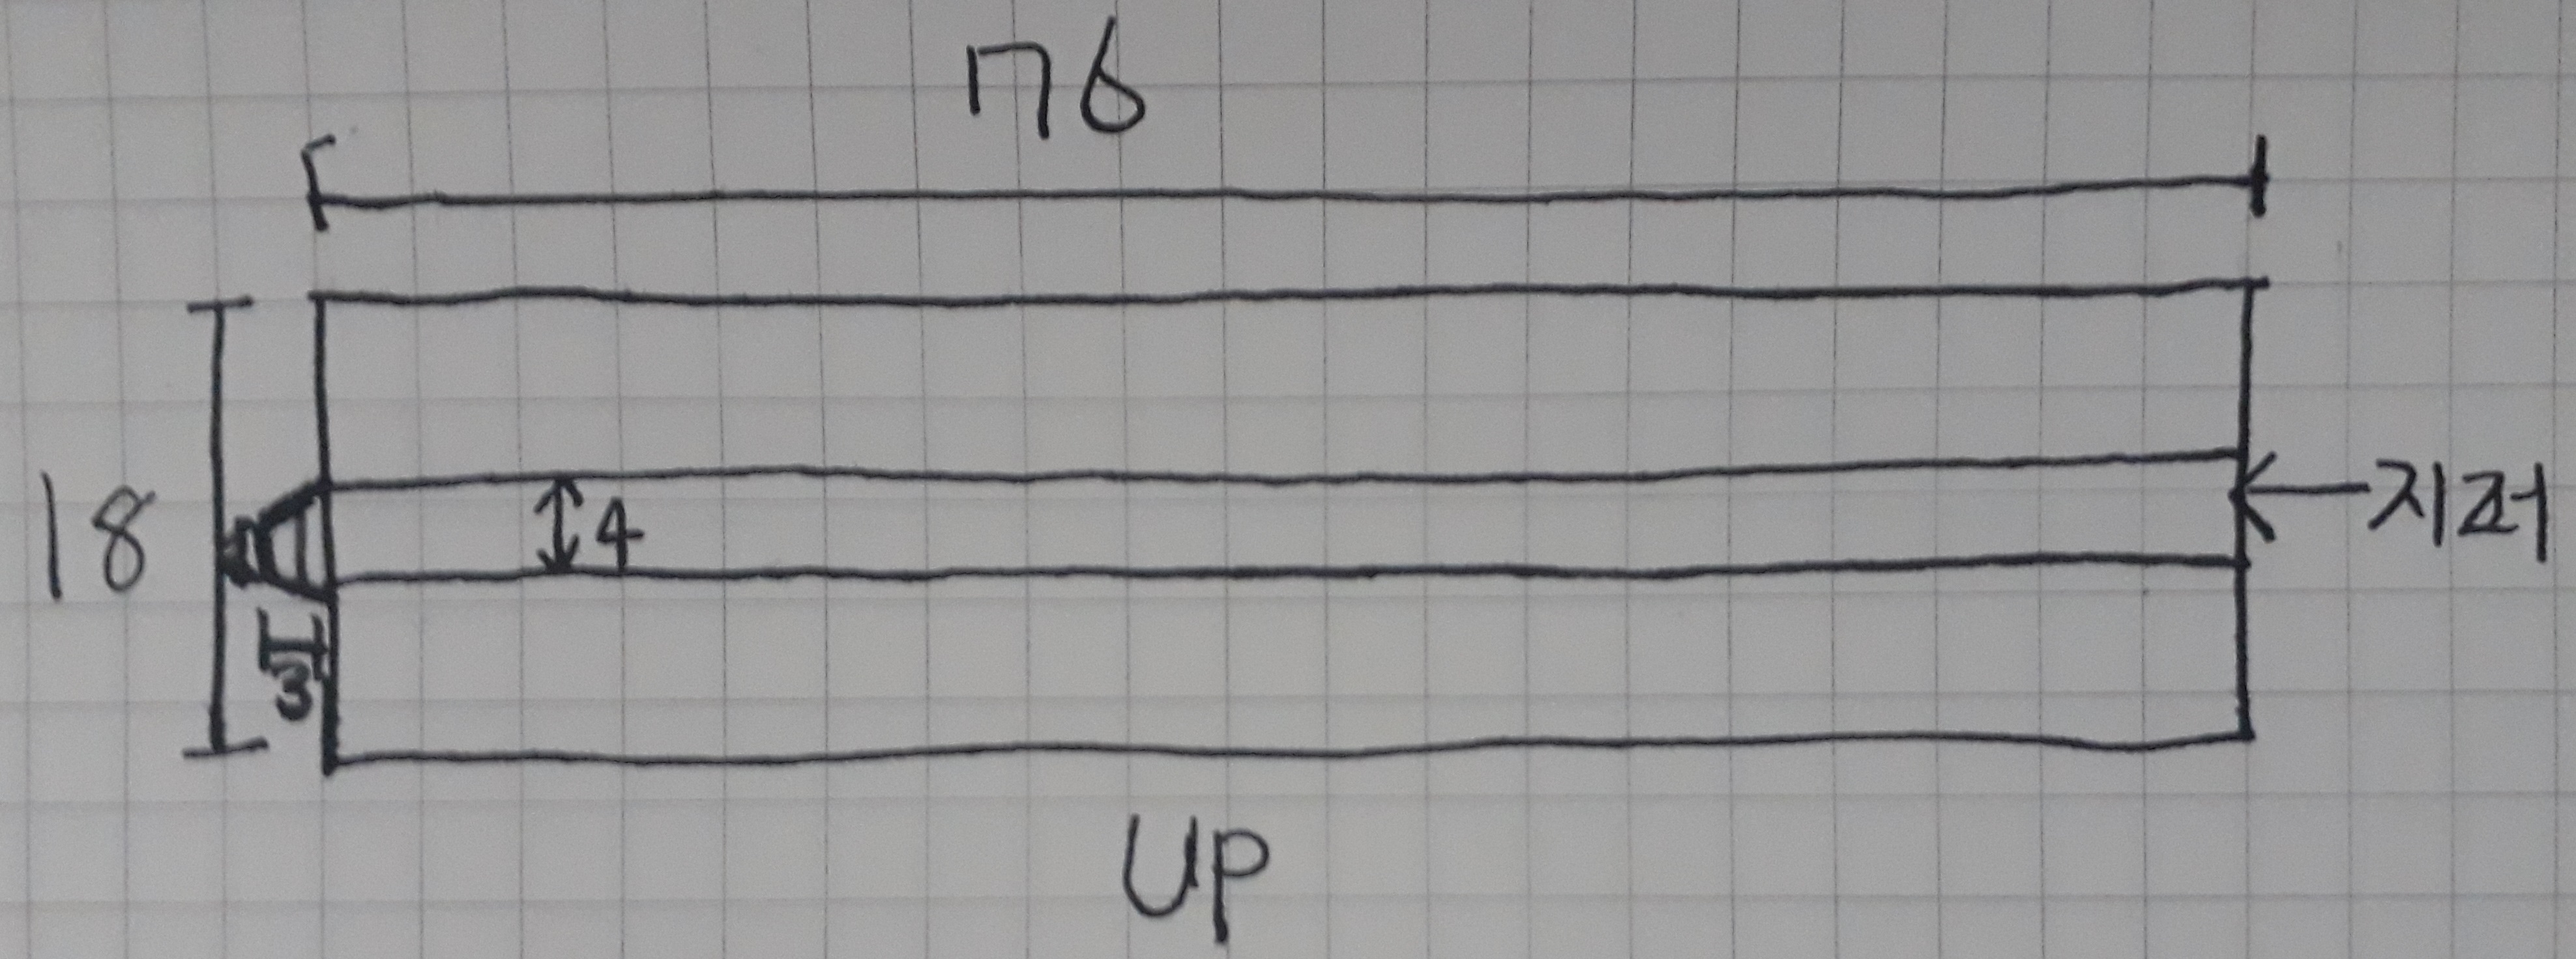 76
18
4
지퍼
3
UP